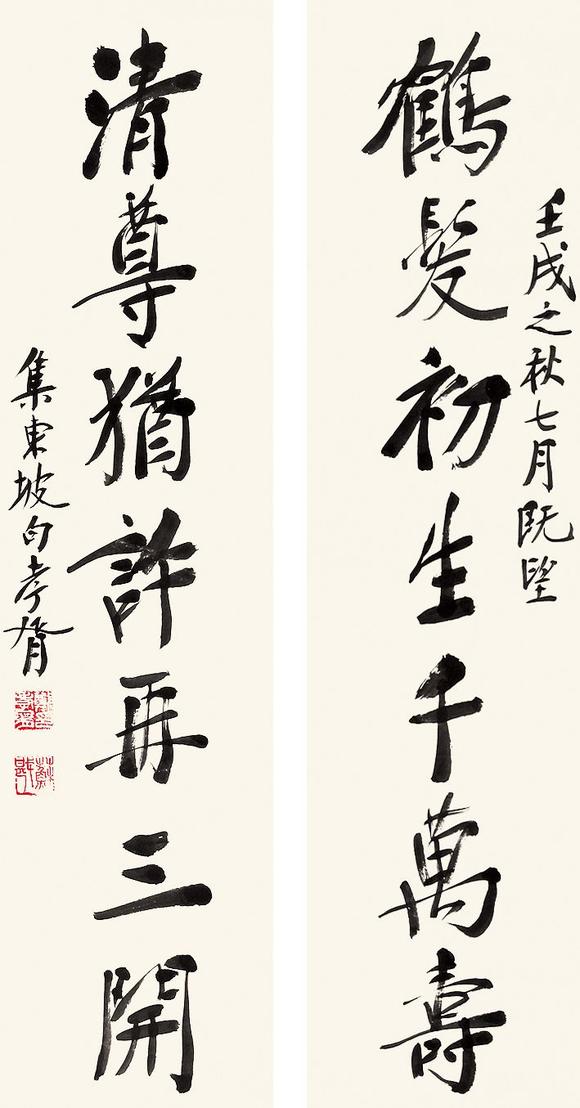 壬戌之秋七月既望
鶴髮初生千萬壽
清尊猶許再三開
集東坡句孝胥